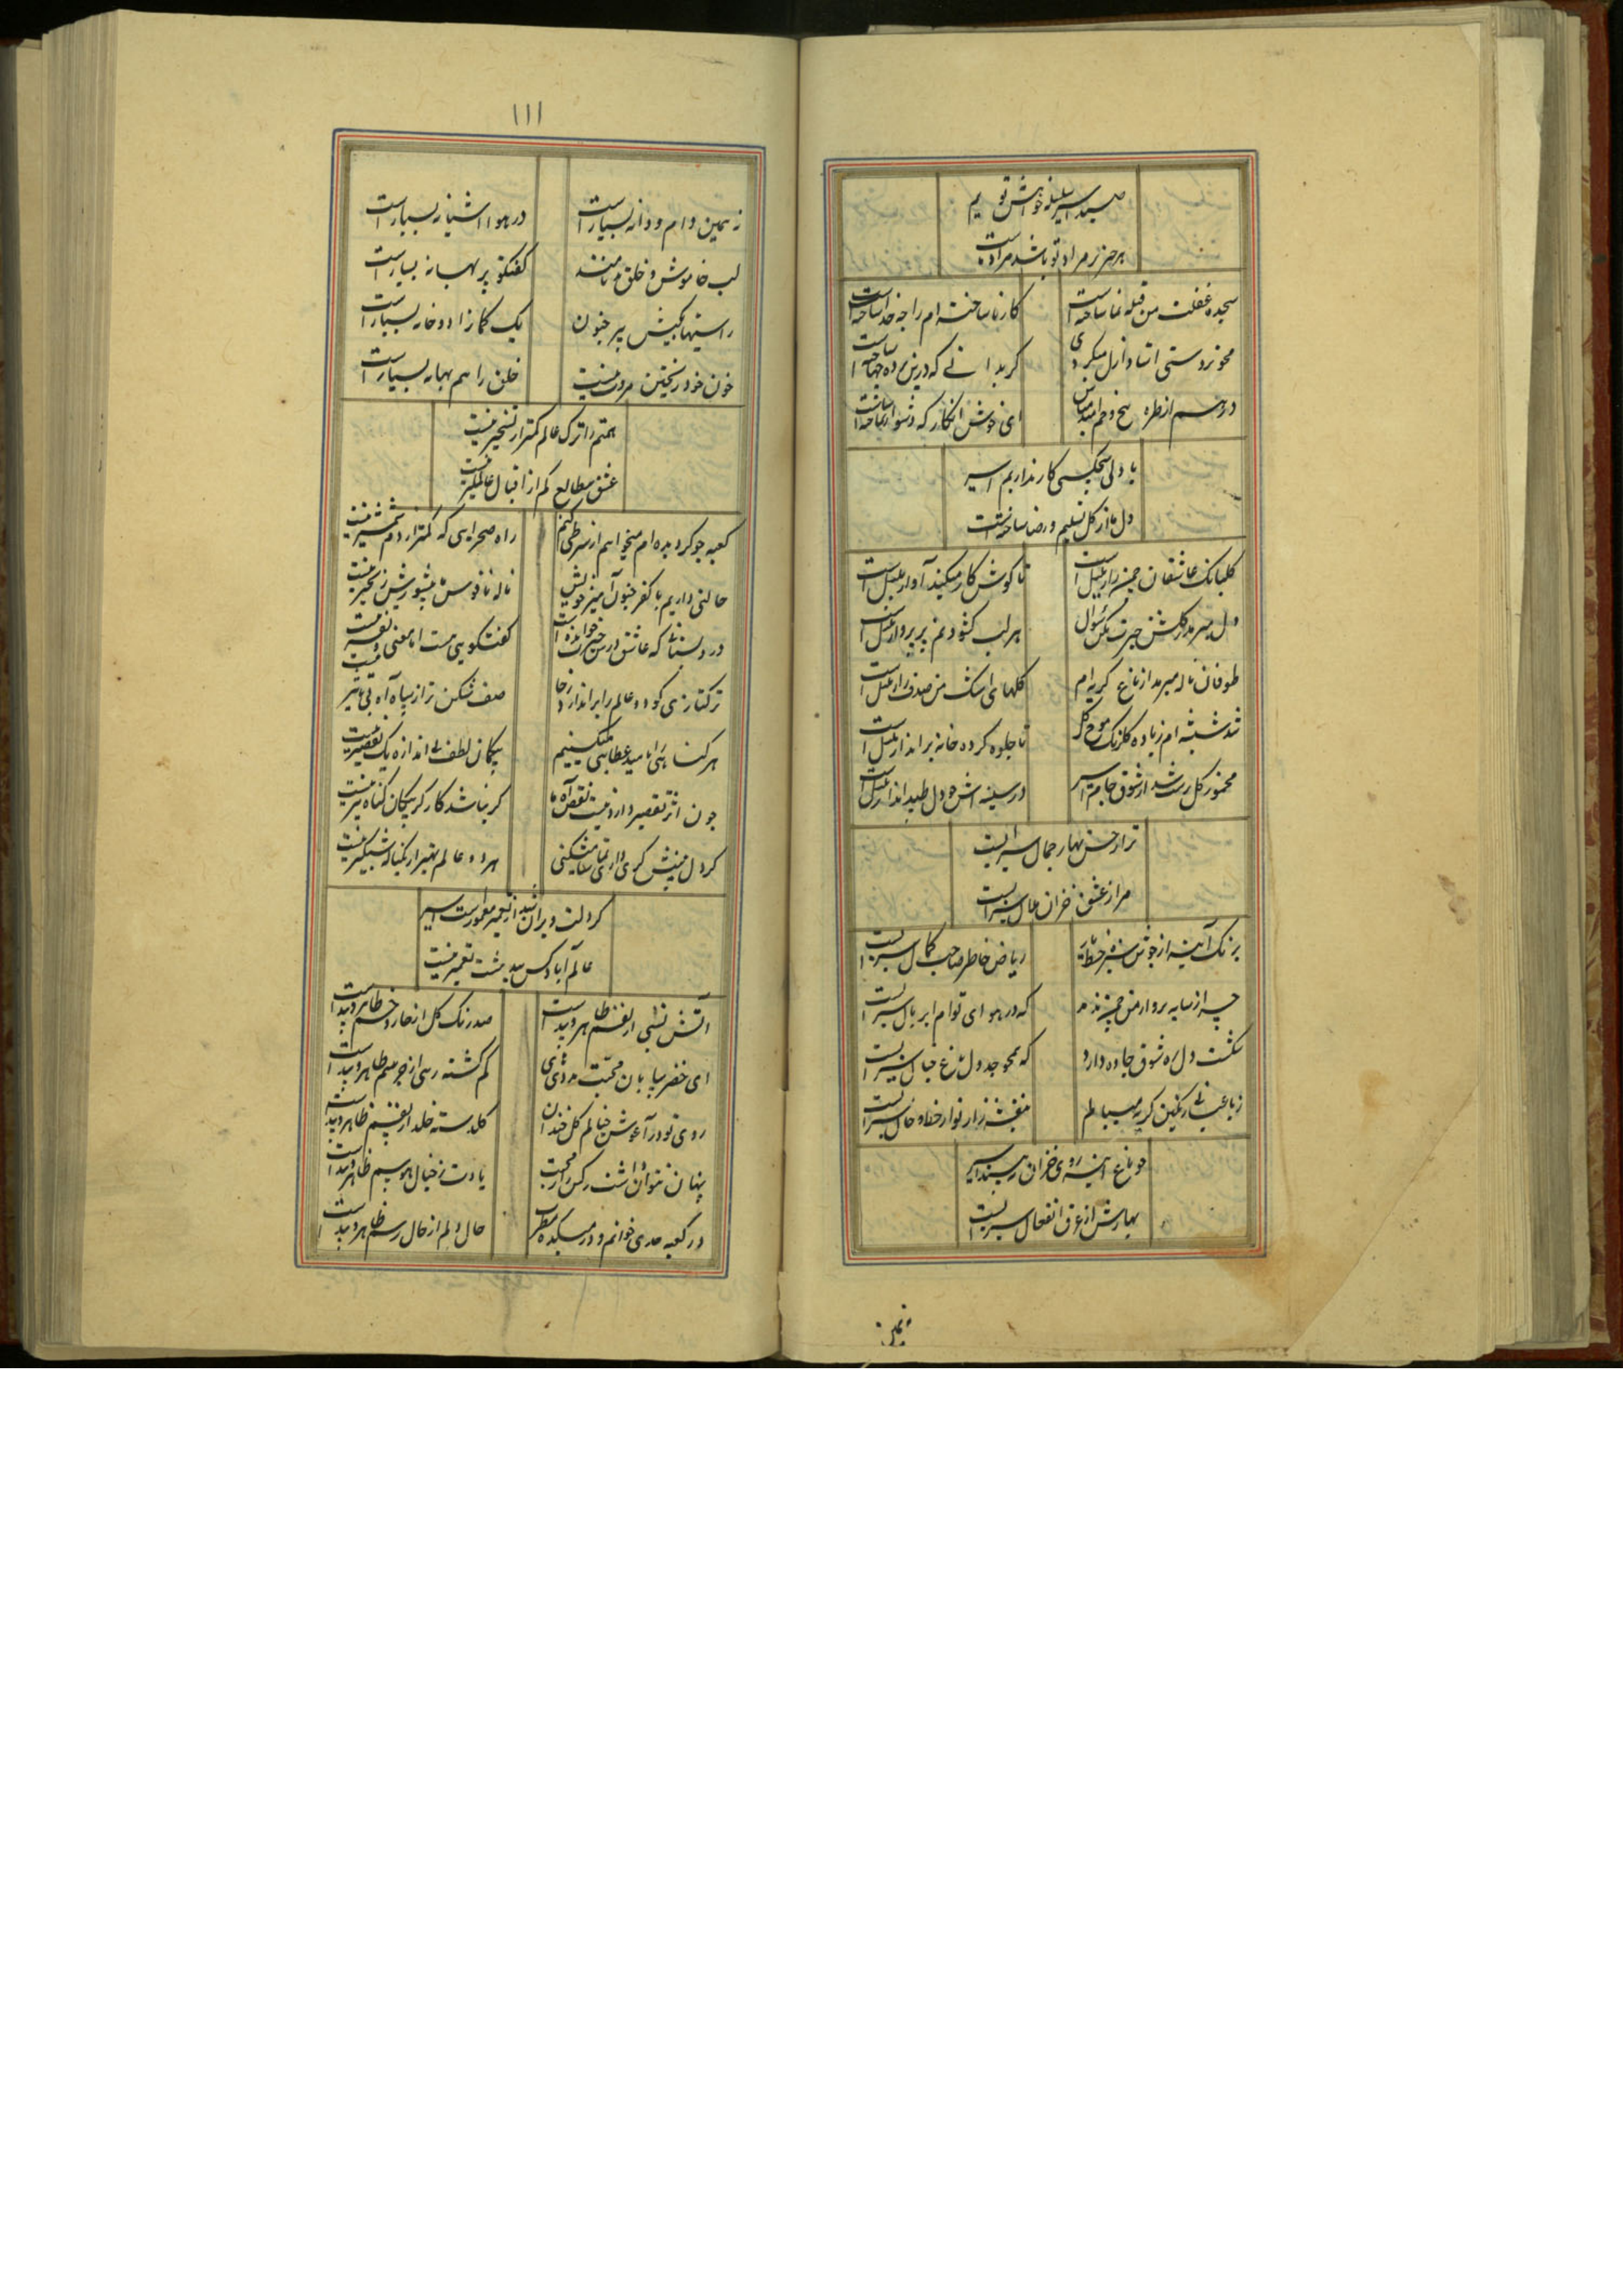 صید اسیر سلسله خواهش تو ایم
هر چیز مراد تو باشد مراد ماست
سجده غفلت من قبله نما ساخته است
کار ناساخته ام را چه خدا ساخته است
محو تردستی استاد ازل میکردی
گر بدانی که درین پرده چها ساخته است
ای خوش انکار که دشوار ساخته است
با دل هیچکسی کار نداریم اسیر
دل ما از گل تسلیم و رضا ساخته است
گلبانگ عاشقان چمن راز بلبل است
تا گوش کار میکند آواز بلبل است
هر لب گشودنم پر پرواز بلبل است
طوفان ناله میرمد از باغ گریه ام
گلهای اشک من صدف راز بلبل است
شد شیشه ام ز باده گلرنگ موج گل
تا جلوه کرده خانه برانداز بلبل است
مخمور گل رسد از شوق جام اسیر
در سینه اش دل طپید انداز بلبل است
ترا ز حسن بهار جمال سبز است
مرا ز عشق خزان حال سبز است
برنگ آینه از جوش سبزه خط یار
ریاض خاطر صاحب کمال سبز است
چه از سایه پروار من چمن
که در هوای توام ابر بال سبز است
شکست دل ره شوق جاده دارد
که همچو جدول باغ خیال سبز است
ز باغبانی رنگین گریه میبالم
بنفشه زار نو از خط و خال سبز است
چو باغ آینه روی خزان نبیند اسیر
بهارش از عرق انفعال سبز است
نه همین
۱۱۱
نه همین دام و دانه بسیار است
در هوا آشیانه بسیار است
لب خاموش و خلق
گفتگو پر بهانه بسیار است
راستیها بکیش پیر جنون
یک کمان را دو خانه بسیار است
خون خود ریختن مروت نیست
خلق را هم بهانه بسیار است
همتم را ترک عالم کمتر از تسخیر نیست
عشق بی طالع کم از اقبال عالمگیر نیست
کعبه جو گردیده ام میخواهم از سر طی کنم
راه صحرایی که کمتر از دم شمشیر نیست
حالتی داریم با کفر جنون آمیز خویش
ناله ناقوس بی شورش زنجیر نیست
در دبستانی که عاشق درس حیرت خوانده است
گفتگویی هست اما معنی تقریر نیست
ترکتازی کو دو عالم را براندازد ز جا
صف شکن تر از سپاه آه بی تاثیر نیست
هر گناهی را بامید عطایی میکنیم
بیگمان لطف بی اندازه یک تقصیر نیست
چون اثر تقصیر دارد نیست نقص آه ما
گر نباشد کارگر پیکان گناه تیر نیست
گر دل بینش گری داری تماشا میکنی
هر دو عالم بهتر از یک ناله شبگیر نیست
گر دلت ویران شد از تعمیر معمور است اسیر
عالم آباد کس بی مشت تعمیر نیست
آتش نسبی از نفسم ظاهر و پیداست
صد رنگ گل از خار و خسم ظاهر و پیداست
ای خضر بیابان محبت مددی
گم گشته رهی از جرسم ظاهر و پیداست
روی تو در آغوش خیالم گل خندان
گلدسته خلد از قفسم ظاهر و پیداست
پنهان نتوان داشت رگ از محبت
یادت ز خیال هوسم ظاهر و پیداست
در کعبه حدی خوانم و در میکده مطرب
حال دلم از حال رسم ظاهر و پیداست